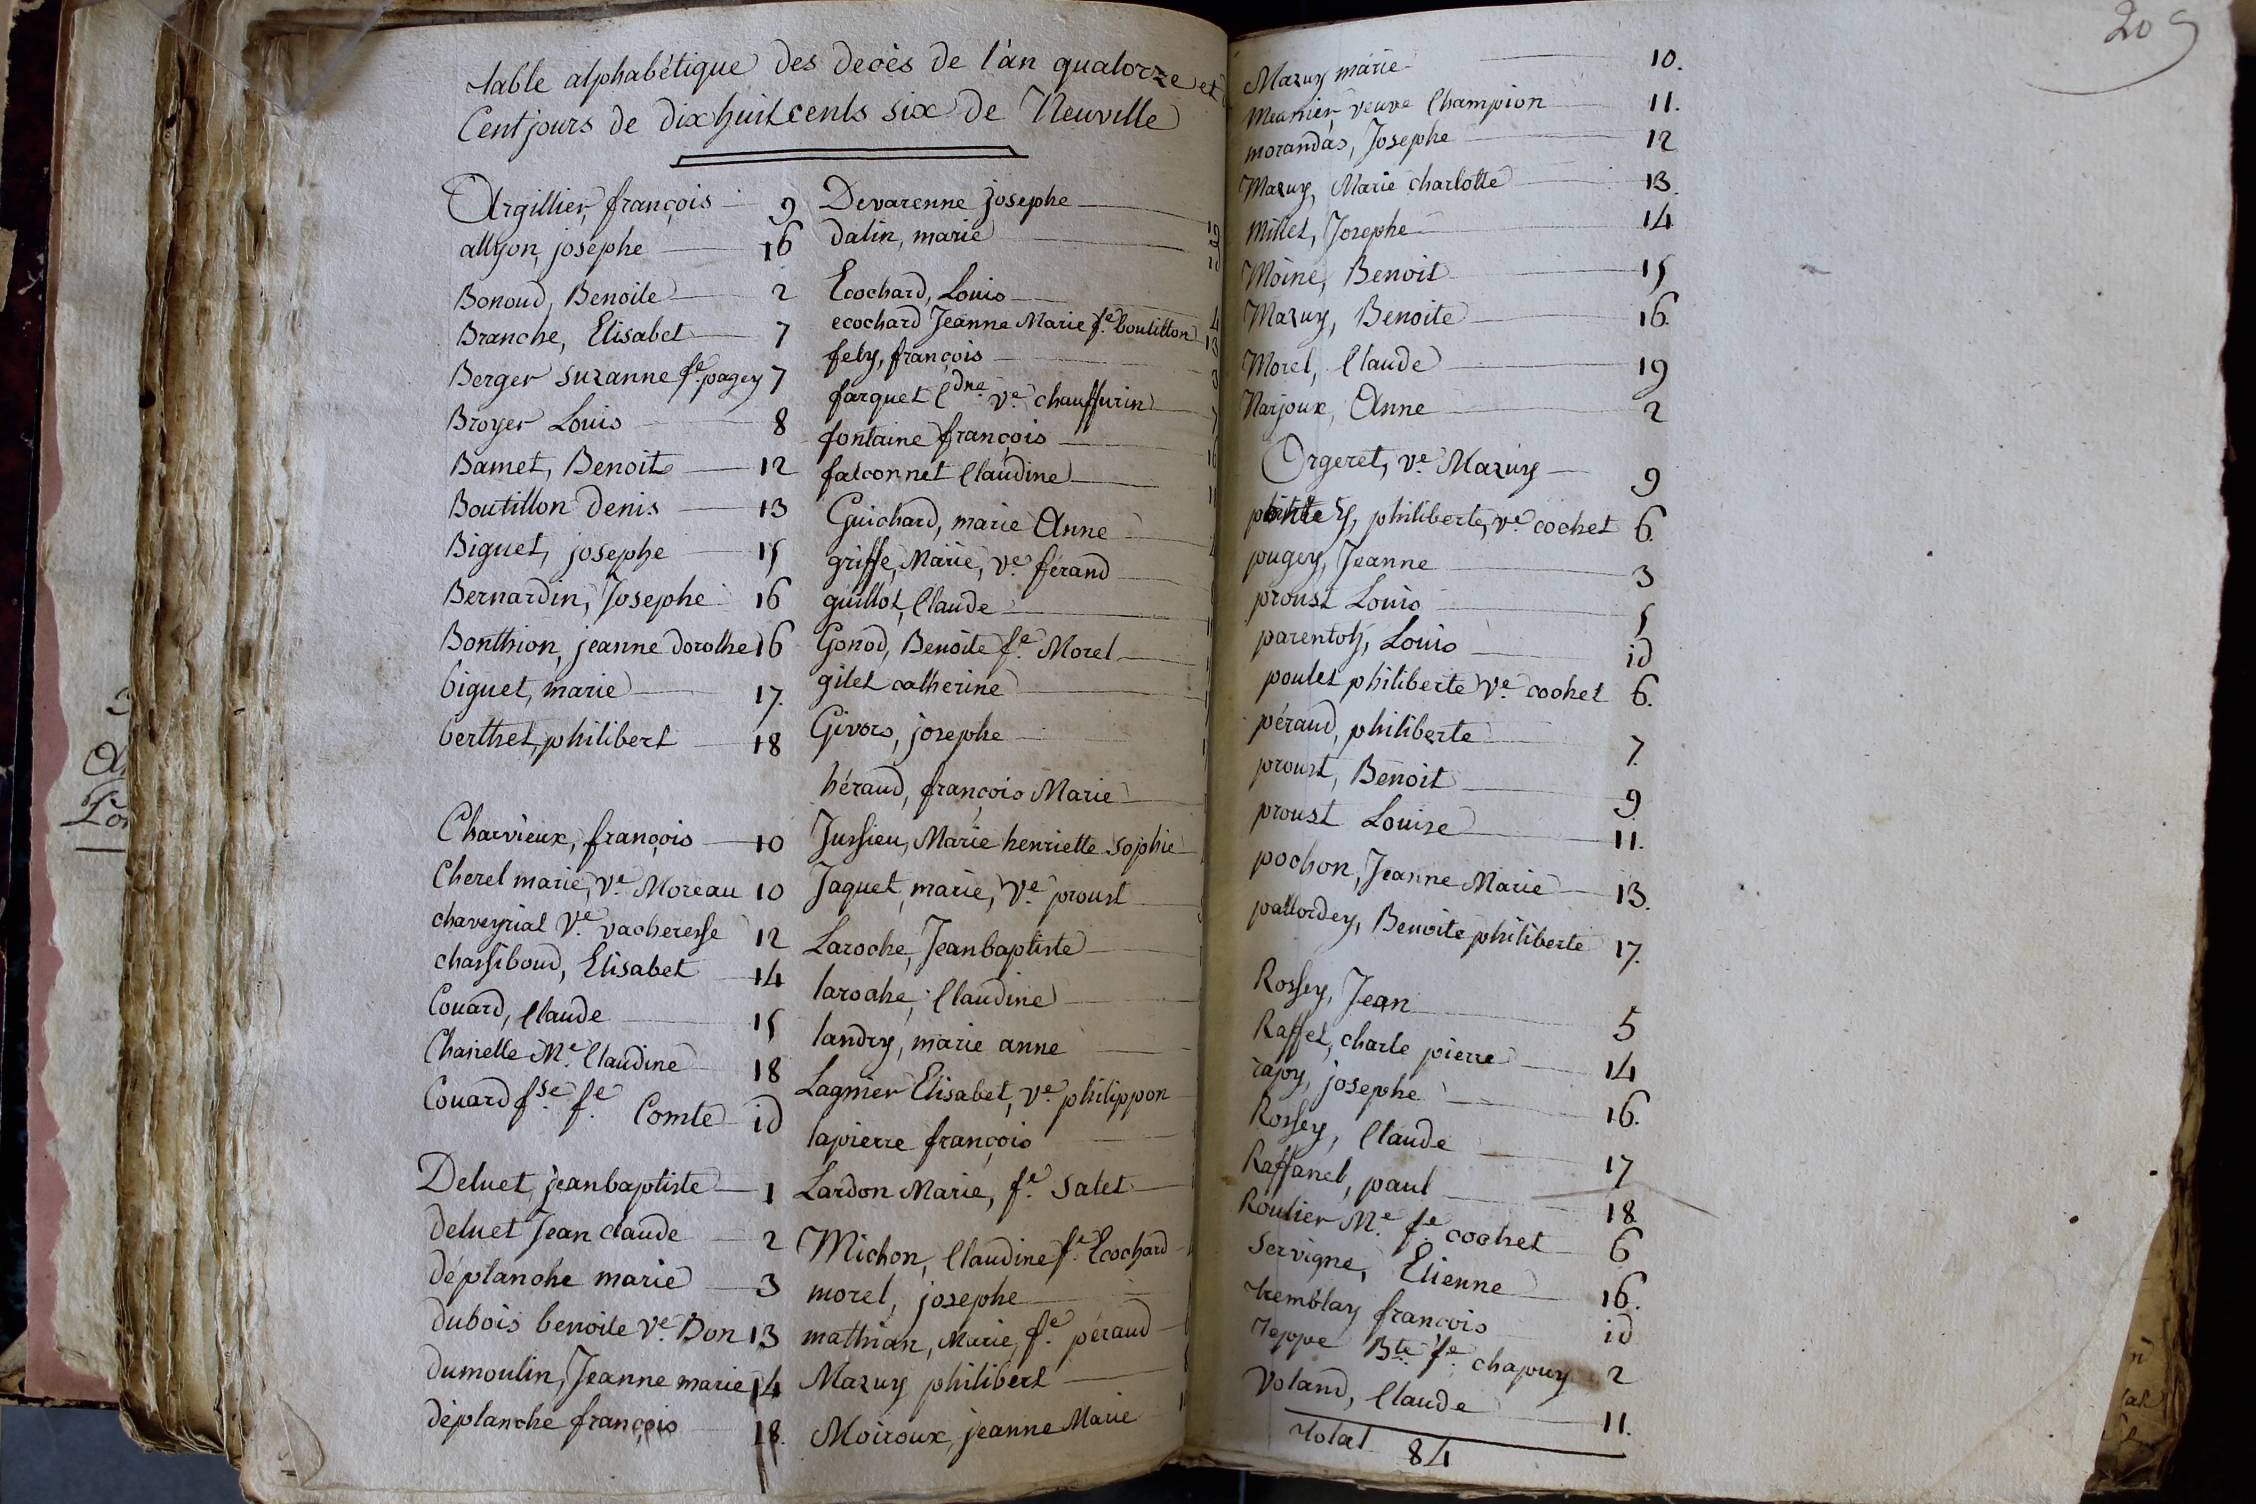 table alphabétique des decès de l'an quatorze et
Cent jours de dixhuit cents six de Neuville
Argillier, françois 9
allyon, josephe 16
Bonoud, Benoite 2
Branche, Elisabet 7
Berger suzanne fe. pagey 7
Broyer Louis 8
Bamet, Benoite 12
Boutillon denis 13
Biguet, josephe 15
Bernardin, Josephe 16
Bonthion, jeanne dorothe 16
biguet, marie 17.
berthet, philibert 18
Charvieux, françois 10
Cherel marie, ve. Moreau 10
chaveyrial ve. vacheresse 12
chassiboud, Elisabet 14
Couard, Claude 15
Chanelle Me. Claudine 18
Couard fse. fe. Comte id
Deluet, jeanbaptiste 1
deluet Jean claude 2
déplanche marie 3
dubois benoite ve. Don 13
dumoulin, Jeanne marie 14
déplanche françois 18.
Devarenne josephe
dalin, marie
Ecochard, Louis 4
ecochard Jeanne Marie fe. boutillon 13
fely, françois 3
farquet Cdne. ve. chauffurin 7
fontaine françois 16
falconnet Claudine
Guichard, marie Anne
griffe, Marie, ve. férand
guillot, Claude
Gonod, Benoite fe. Morel
gilet catherine
Givors, josephe
héraud, françois Marie
Jussieu, Marie henriette sophie
Jaquet, marie, ve. proust
Laroche, Jeanbaptiste
laroche, Claudine
landry, marie anne
Lagnier Elisabet, ve. philippon
lapierre françois
Lardon Marie, fe. Salet
Michon, Claudine fe. Ecochard
morel, josephe
mathian, Marie, fe. péraud
Mazuy philibert
Moiroux, jeanne Marie
209
Mazuy marie 10.
Meunier, veuve Champion 11.
morandas, Josephe 12
Mazuy, Marie charlotte 13.
Millet, Josephe 14
Moine, Benoit 15
Mazuy, Benoite 16.
Morel, Claude 19
Narjoux, Anne 2
Orgeret, ve. Mazuy 9
philiberte, ve. cochet 6.
pugey, Jeanne 3
proust Louis 5
parentoh, Louis id
poulet philiberte ve. cochet 6.
péraud, philiberte 7.
proust, Benoit 9
proust Louise 11.
pochon, Jeanne Marie 13.
pallordey, Benoite philiberte 17.
Rossey, Jean 5
Raffet, charle pierre 14
rajoy, josephe 16.
Rossey, Claude 17
Raffanel, paul 18
Roulier Me. fe. cochet 6
servigne, Etienne 16.
tremblay françois id
Teppe Bte. fe. chapuy 2
Voland, Claude 11.
total 84